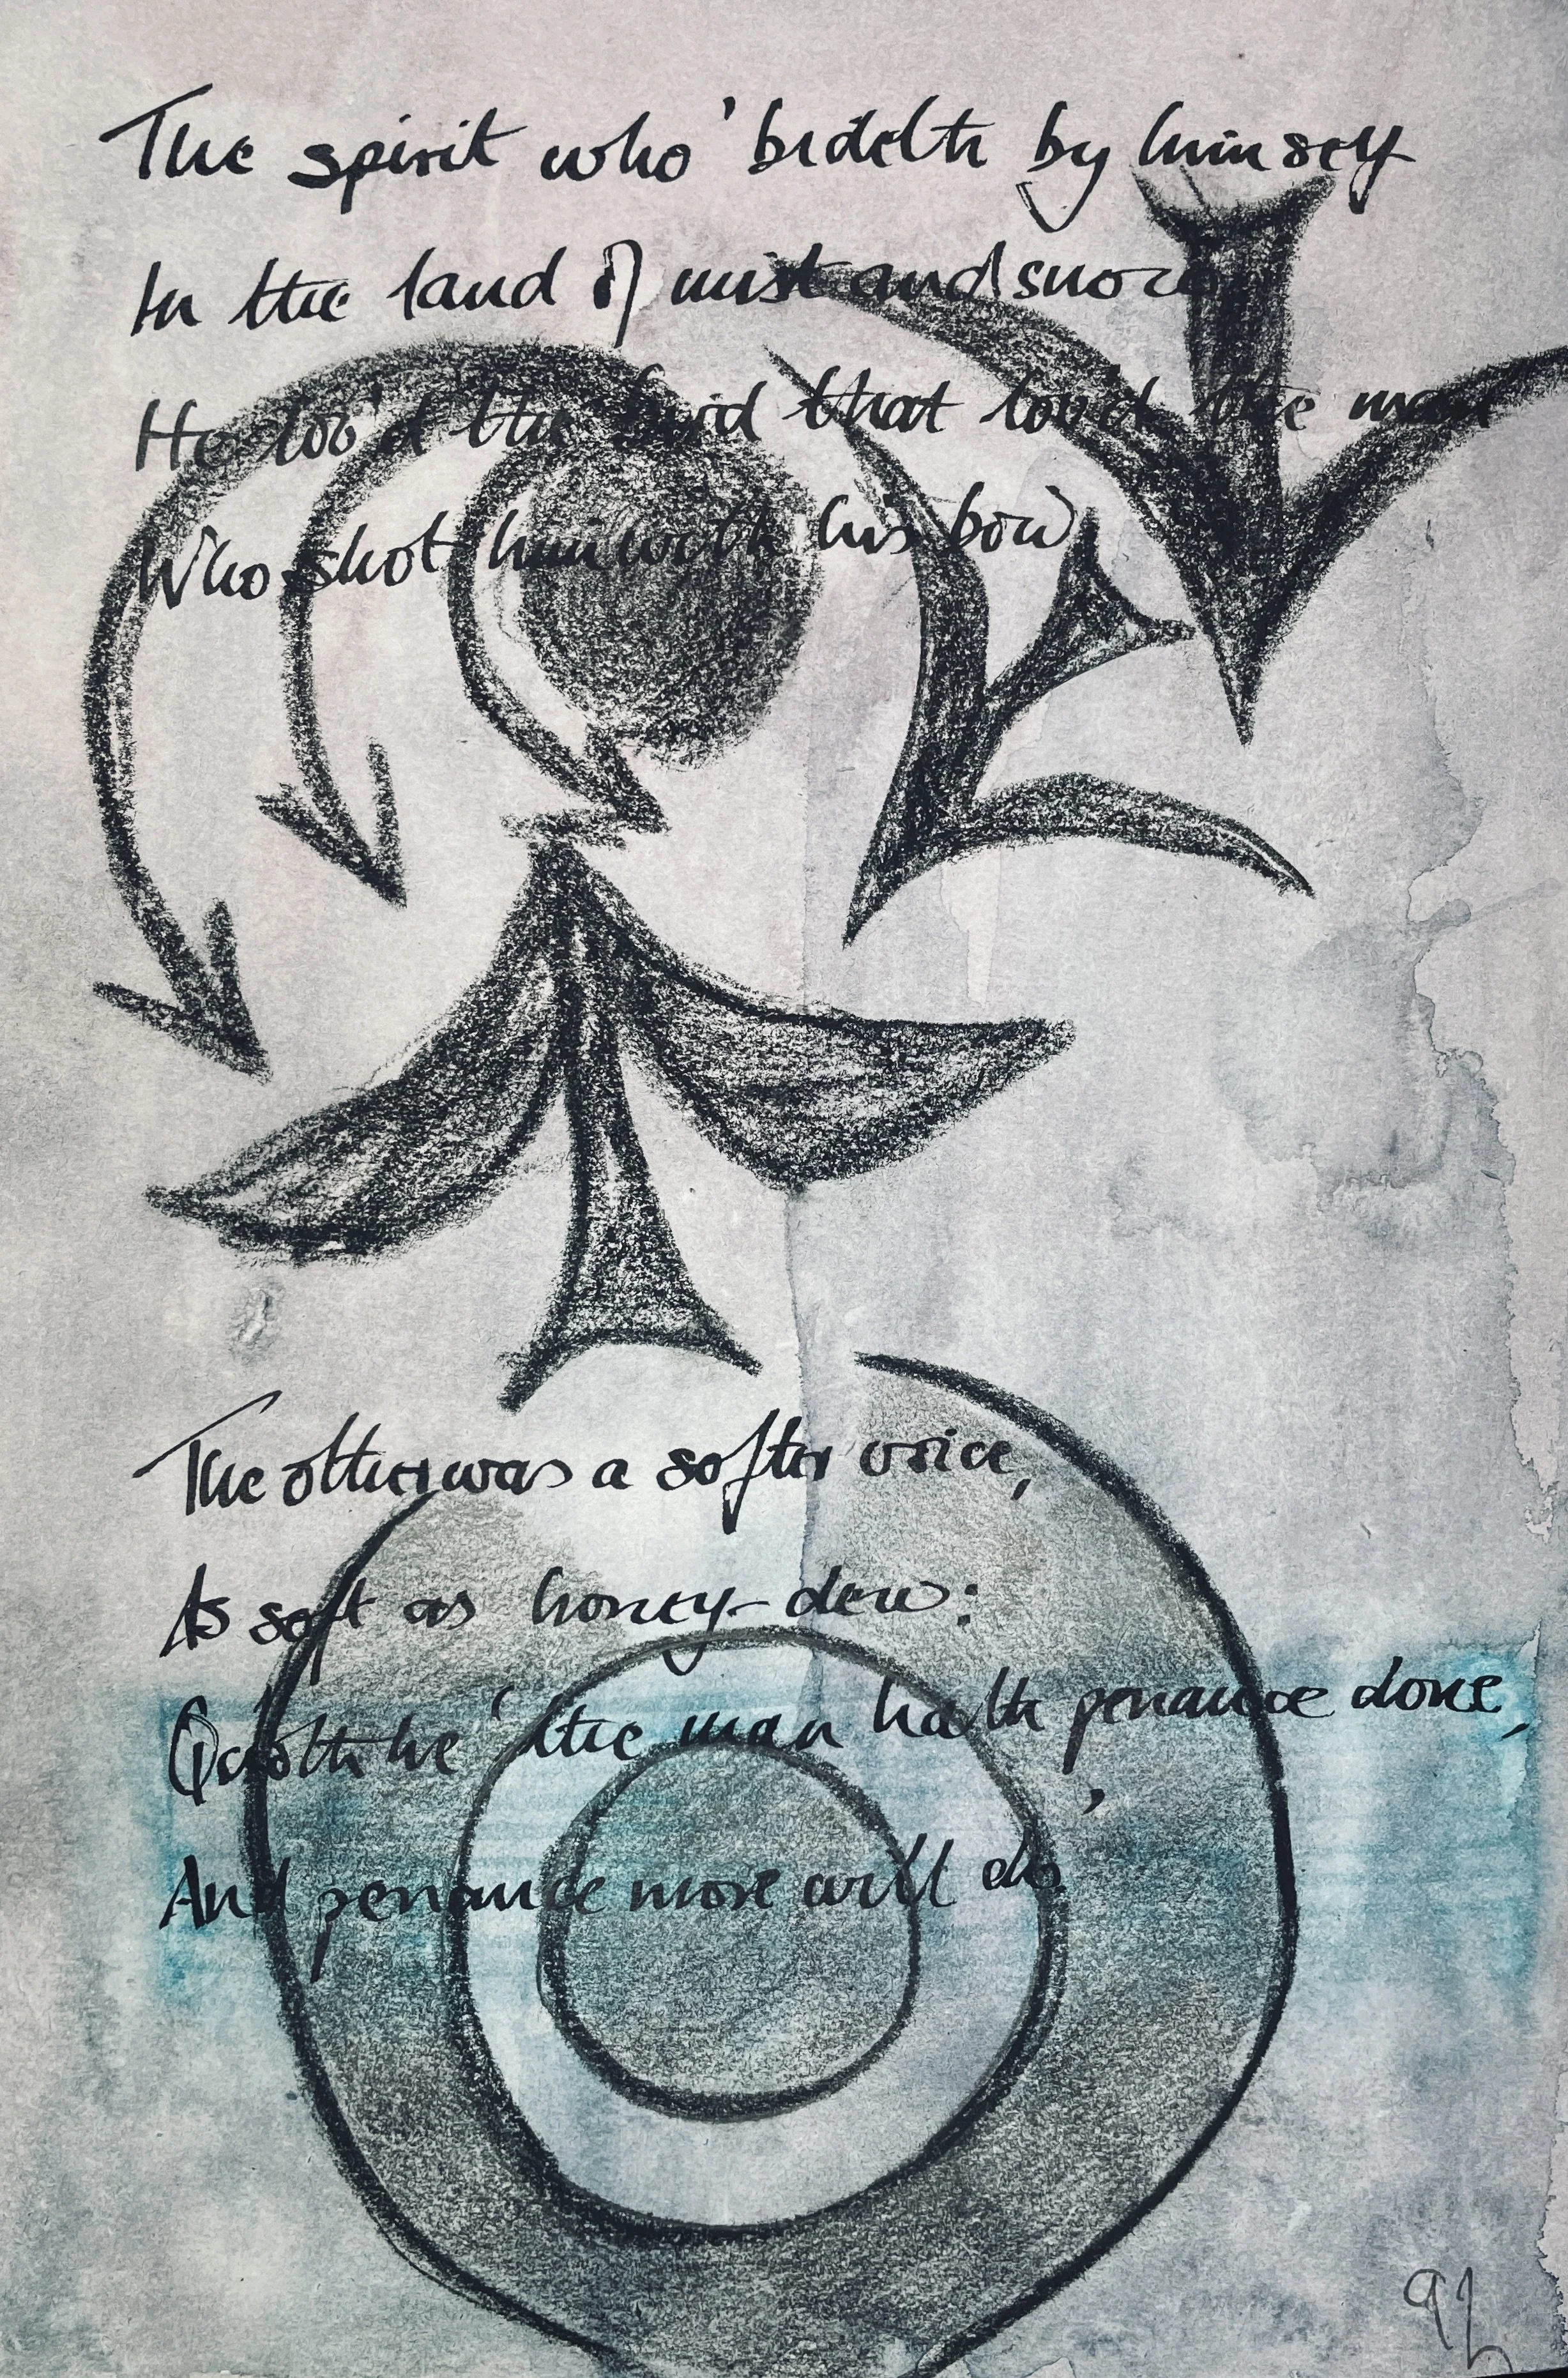 The spirit who 'bideth by himself
In the land of mist and snow,
He lov'd the bird that lov'd the man
Who shot him with his bow.
The other was a softer voice,
As soft as honey-dew:
Quoth he 'the man hath penance done,
And penance more will do.'